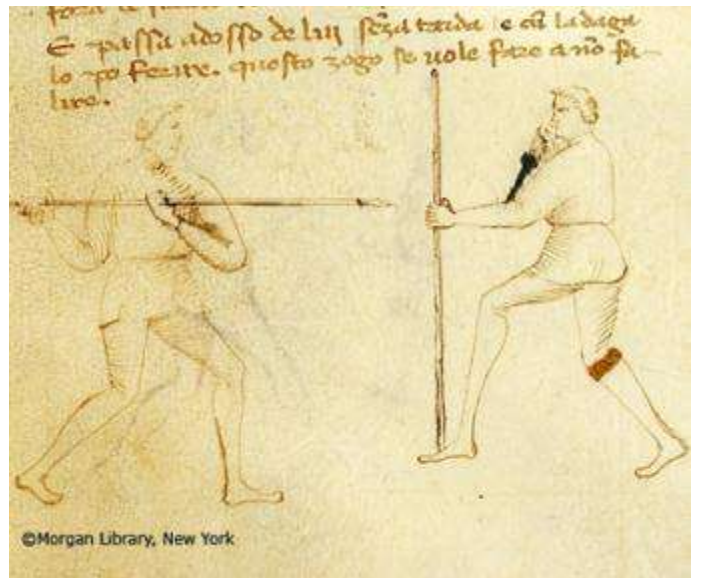 E passa adosso de luj sẽza tarda e cũ la daga
lo po ferire. questo zogo se uole fare a nõ fa-
lire.
©Morgan Library, New York